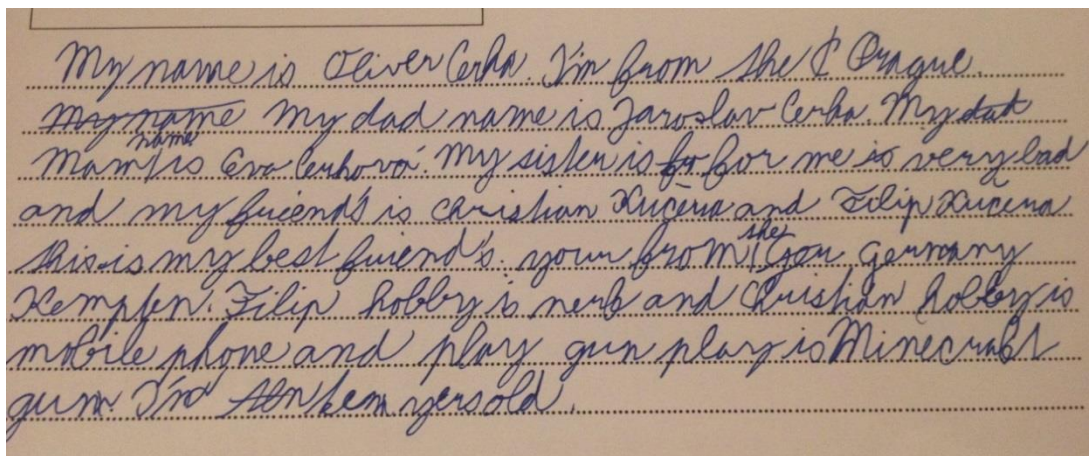 My name is Oliver Cerha. I'm from the Prague.
my name My dad name is Jaroslav Cerha. My dad
Mam name is Eva Cerhová. My sister is for me is very bad
and my friend's is Christian Kučera and Filip Kučera
this is my best friend's. your from the Germany
Kempten. Filip hobby is nerb and Christian hobby is
mobile phone and play gun play is Minecrabt
gum. I'm ten yers old.